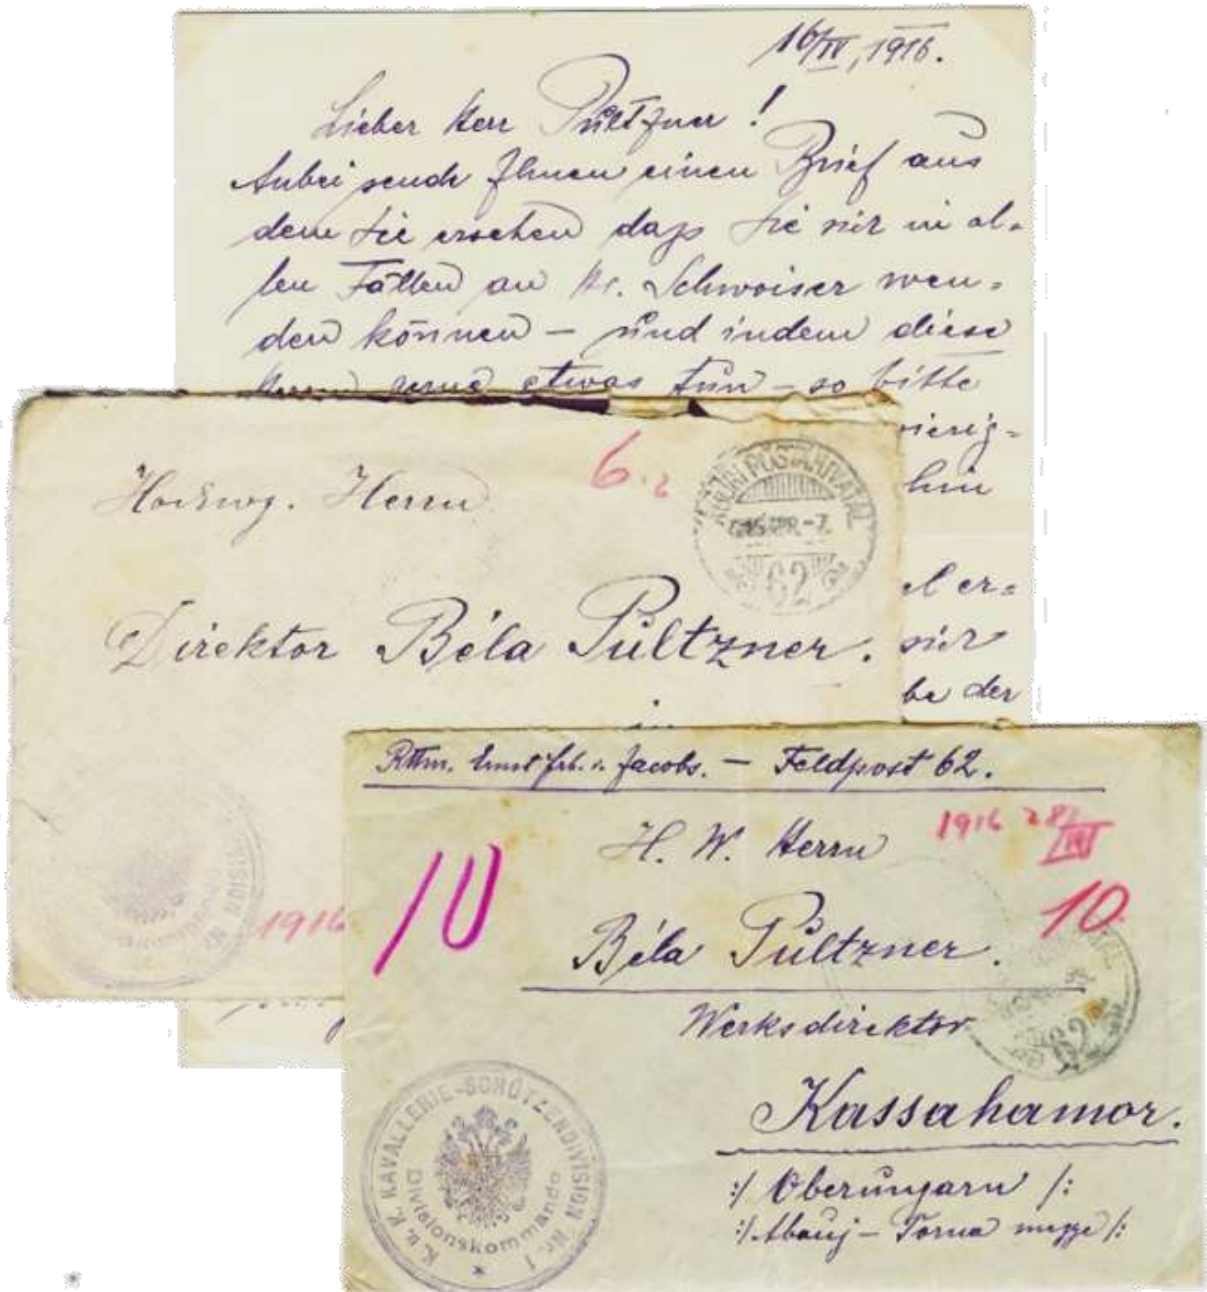 16/IV, 1916.
Lieber Herr Pültzner!
Anbei sende Ihnen einen Brief aus
dem Sie ersehen daß Sie sich in al-
len Fällen an Hr. Schwoiser wen-
den können – und indem diese
Herrn gerne etwas tun – so bitte
wierig-
hin
el er-
mir
be der
Hochwg. Herrn
6.
TÁBORI POSTAHIVATAL
62
Direktor Béla Pültzner.
in
1916
Rttm. Ernst Frh. v. Jacobs. – Feldpost 62.
H. W. Herrn
1916 28/III
10
10.
Béla Pültzner.
Werksdirektor
62
Kassahamor.
:/ Oberungarn /:
:/ Abauj – Torna megye /:
K. u. K. KAVALLERIE-SCHÜTZENDIVISION Nr. 1
Divisionskommando